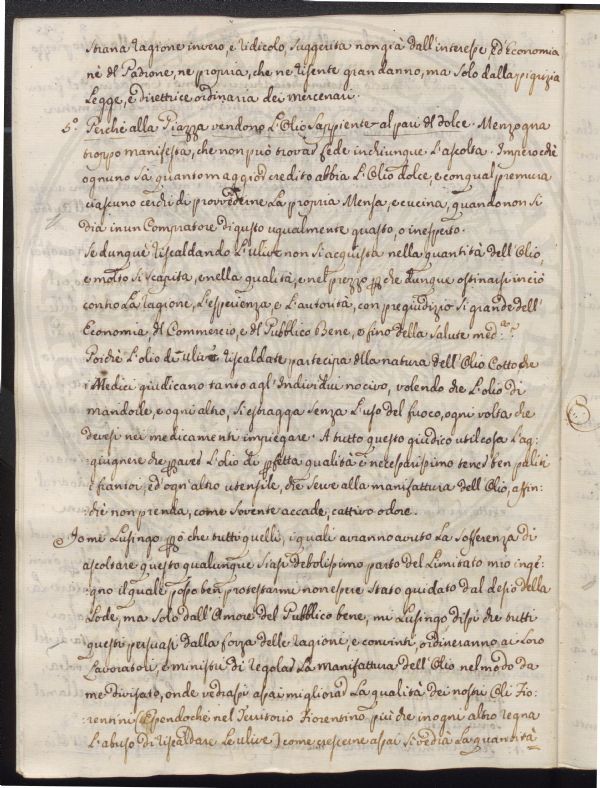 Strana ragione invero, e ridicola, suggerita non già dall'interesse, ed'Economia
nè del Padrone, ne propria, che ne risente gran danno, ma solo dalla pigrizia
Legge, e direttrice ordinaria dei mercenari.
5.° Perchè alla Piazza vendono l'Olio Sappiente al pari del dolce. Menzogna
troppo manifesta, che non può trovar fede in chiunque l'ascolta. Imperocchè
ognuno sà quanto maggior credito abbia l'Olio dolce, e con qual premura
ciascuno cerchi di provvederne la propria Mensa, e cucina, quando non si
dia in un Compratore di gusto ugualmente guasto, o inesperto.
Se dunque riscaldando l'ulive non si acquista nella quantità dell'Olio,
e molto si scapita, e nella qualità, e nel prezzo, pchè dunque ostinarsi in ciò
contro la ragione, l'esperienza, e l'autorità, con pregiudizio sì grande dell'
Economia, del Commercio, e del Pubblico Bene, e fino della Salute med.ma?
Poichè l'olio d'ulive riscaldate partecipa della natura dell'Olio Cotto che
i Medici giudicano tanto agl'Individui nocivo, volendo che l'olio di
mandorle, e ogni altro, si estragga senza l'uso del fuoco, ogni volta che
devesi nei medicamenti impiegare. A tutto questo giudico util cosa l'ag:
:giugnere che p aver l'olio di pfetta qualità è necessarissimo tener ben puliti
i frantoi, ed ogn'altro utensile, che serve alla manifattura dell'Olio, affin:
:chè non prenda, come sovente accade, cattivo odore.
Io mi lusingo pò che tutti quelli, i quali avranno avuto la sofferenza di
ascoltare questo qualunque siasi debolissimo parto del limitato mio inge:
:gno il quale posso ben protestarmi non essere stato guidato dal desio della
Lode, ma solo dall'Amore del Pubblico bene, mi lusingo dissi che tutti
questi persuasi dalla forza delle ragioni, e convinti, ordineranno ai loro
Lavoratori, e ministri di regolar la manifattura dell'Olio nel modo da
me divisato, onde vedrassi assai migliorar la qualità dei nostri Oli Fio:
:rentini (Essendochè nel Territorio Fiorentino più che in ogni altro regna
l'abuso di riscaldare le ulive) come crescerne assai si vedrà la quantità